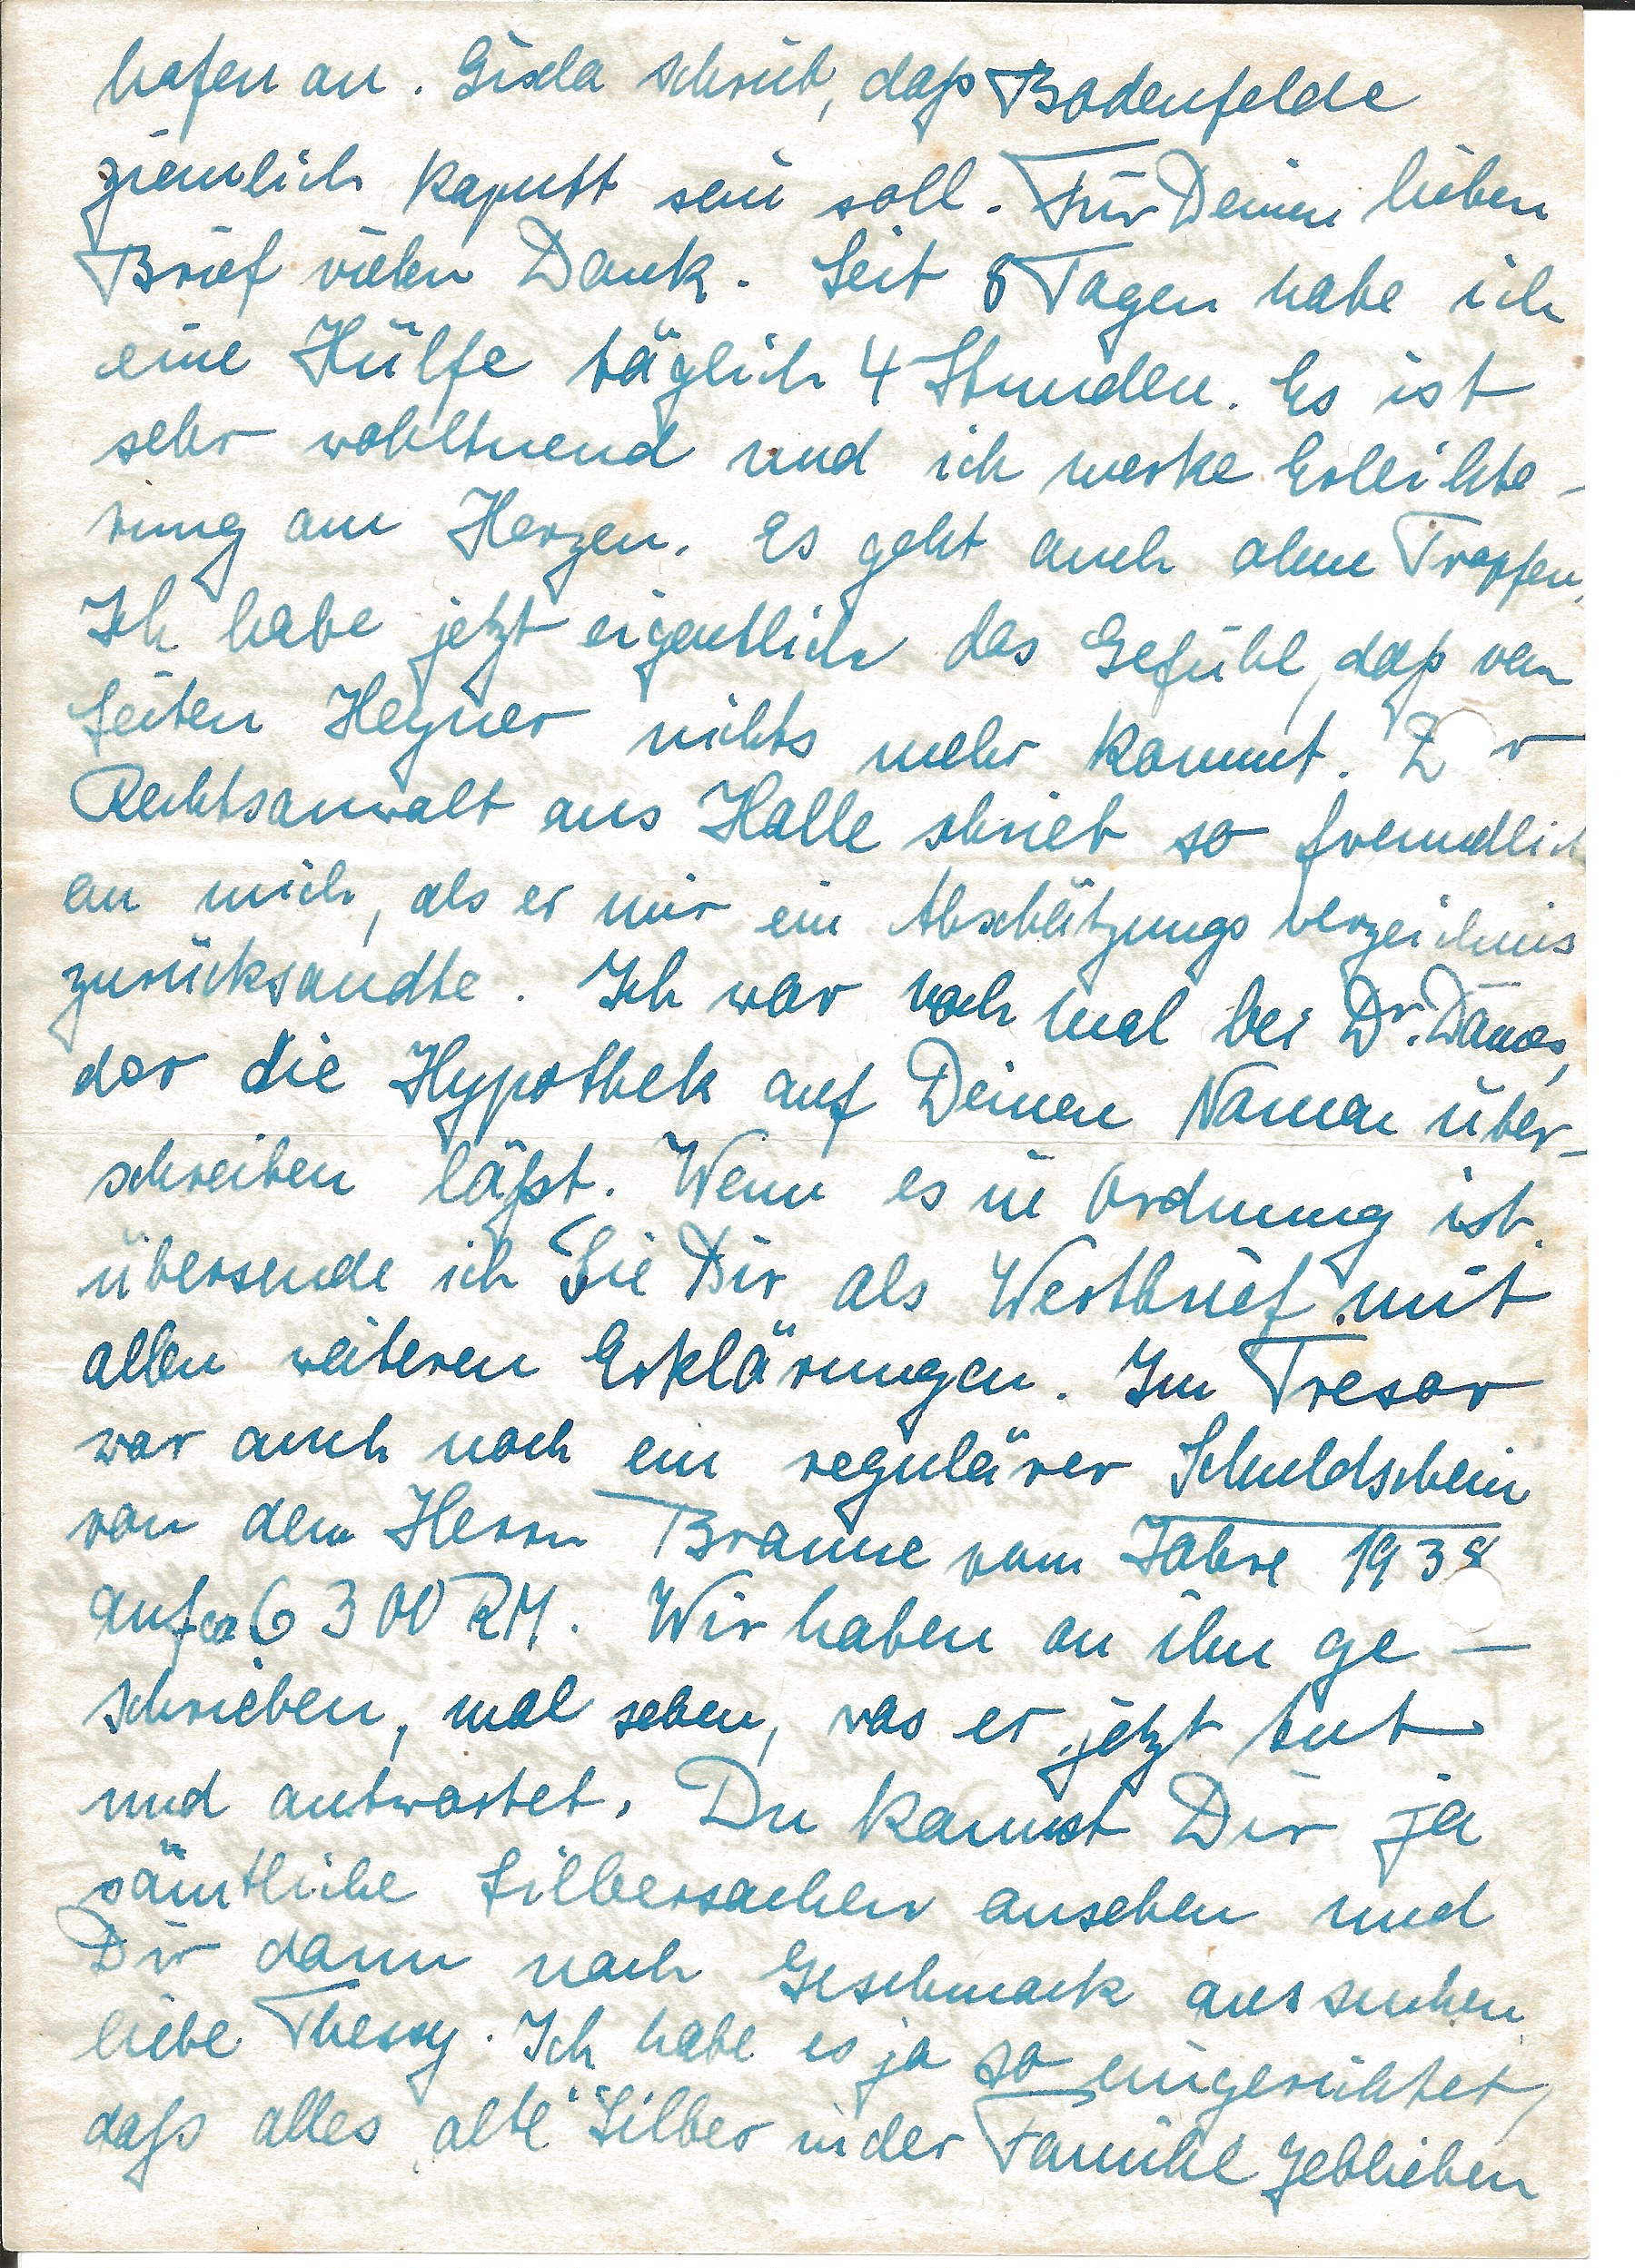 hafen an. Gisela schrieb, daß Bodenfelde
ziemlich kaputt sein soll. Für Deinen lieben
Brief vielen Dank. Seit 8 Tagen habe ich
eine Hülfe täglich 4 Stunden. Es ist
sehr wohltuend und ich merke Erleichte-
rung am Herzen. Es geht auch ohne Tropfen.
Ich habe jetzt eigentlich das Gefühl, daß von
Seiten Heyner nichts mehr kommt. D r
Rechtsanwalt aus Halle schrieb so freundlich
an mich, als er mir ein Abschätzungsverzeichnis
zurücksandte. Ich war noch mal bei Dr.
der die Hypothek auf Deinen Namen über-
schreiben läßt. Wenn es in Ordnung ist.
übersende ich Sie Dir als Wertbrief mit
allen weiteren Erklärungen. Im Tresor
war auch noch ein regulärer Schuldschein
von dem Herrn Braune vom Jahre 1938
auf ca 6300 RM. Wir haben an ihn ge-
schrieben, mal sehen, was er jetzt tut
und antwortet. Du kannst Dir ja
sämtliche Silbersachen ansehen und
Dir dann nach Geschmack aussuchen
liebe Thessy. Ich habe es ja so eingerichtet,
daß alles "alte" Silber in der Familie geblieben